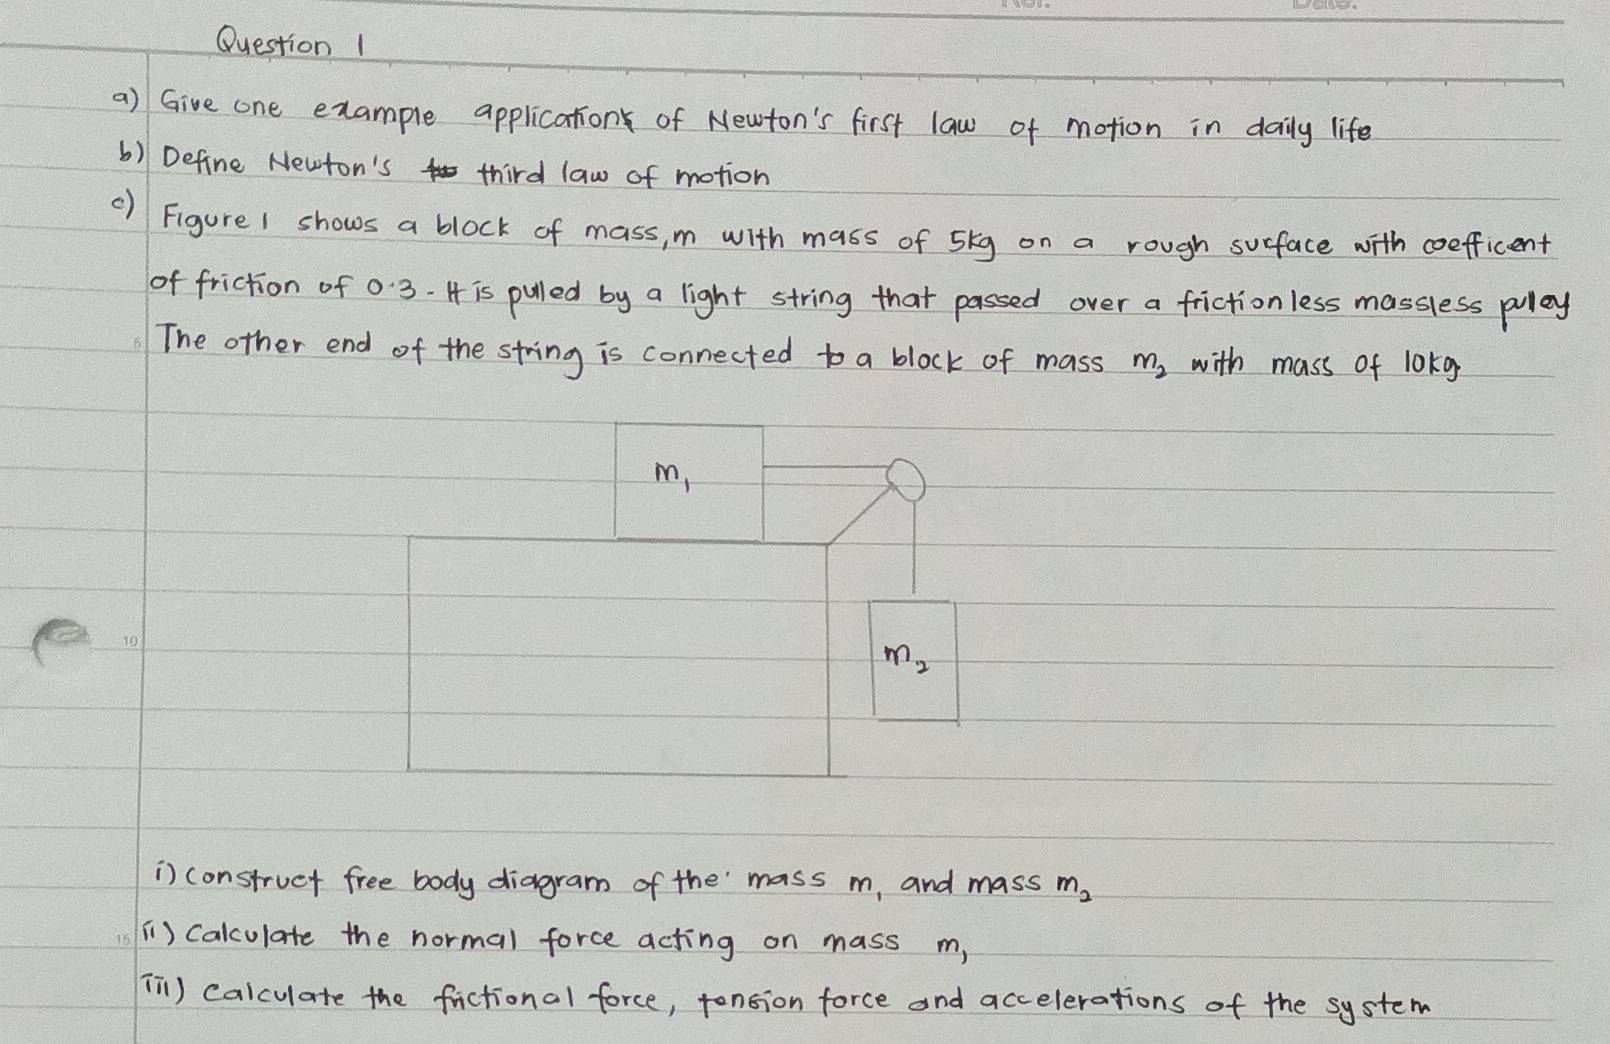 Question 1
a) Give one example applications of Newton's first law of motion in daily life
b) Define Newton's third law of motion
c) Figure 1 shows a block of mass, m with mass of 5kg on a rough surface with coefficent
of friction of 0.3. It is pulled by a light string that passed over a frictionless massless pulley
5 The other end of the string is connected to a block of mass m₂ with mass of 10kg
m₁
m₂
10
i) construct free body diagram of the mass m₁ and mass m₂
15 ii) Calculate the normal force acting on mass m₁
iii) Calculate the frictional force, tension force and accelerations of the system